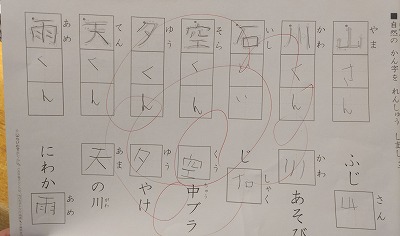 ■自然の かん字を れんしゅう しましょ
やま
山さん
かわ
川くん
いし
石
そら
空くん
ゆう
夕くん
てん
天くん
あめ
雨くん
ふじ山
さん
川あそび
かわ
じ石
しゃく
空中ブラ
くう ちゅう
夕やけ
ゆう
天の川
あま がわ
にわか雨
あめ